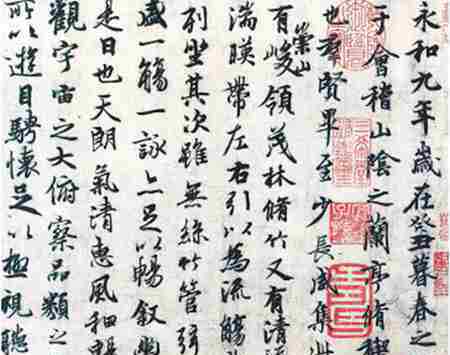 永和九年歲在癸丑暮春之
于會稽山陰之蘭亭脩禊
也群賢畢至少長咸集此
有崇山峻領茂林脩竹又有清
湍暎帶左右引以為流觴
列坐其次雖無絲竹管弦
盛一觴一詠亦足以暢敘幽
是日也天朗氣清惠風和暢
觀宇宙之大俯察品類之
所以遊目騁懷足以極視聽